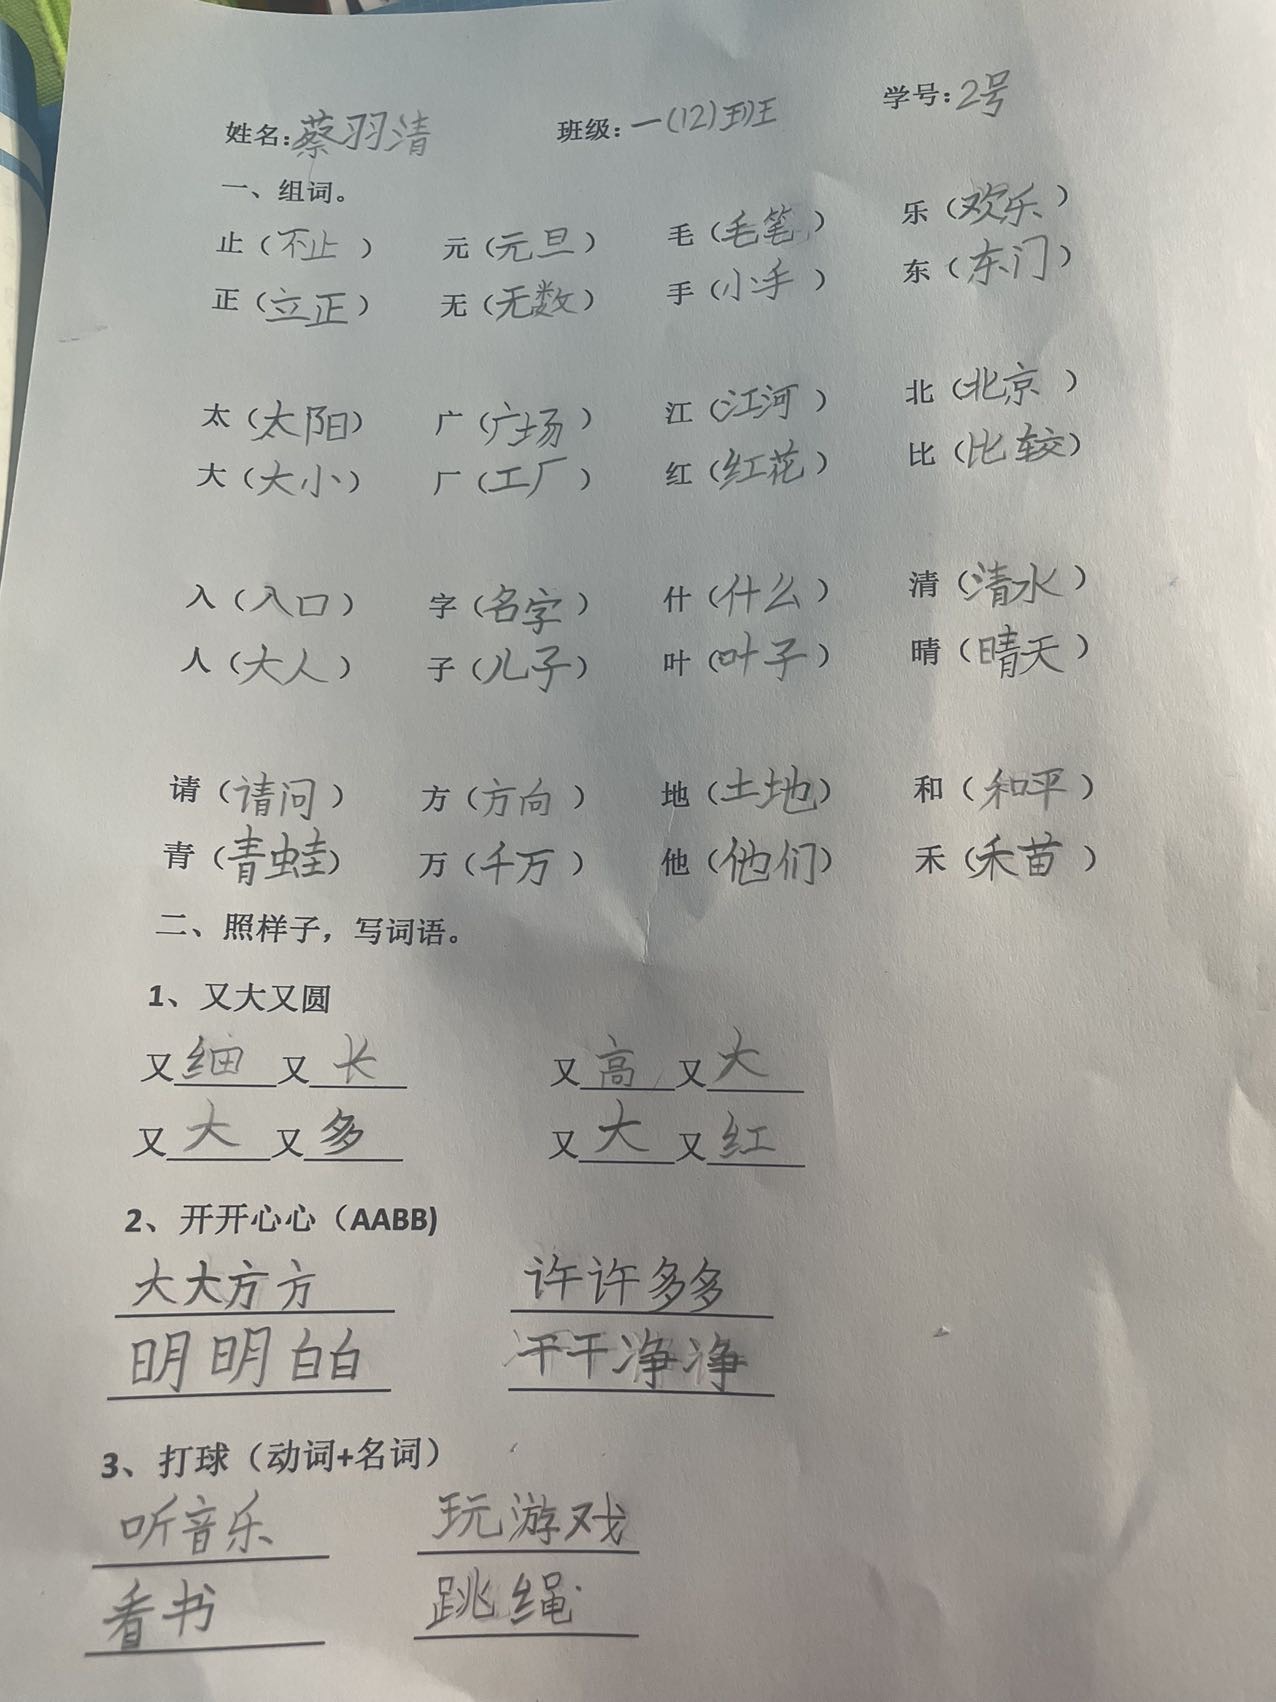 姓名:蔡羽清 班级:一(12)班 学号:2号
一、组词。
止（不止） 元（元旦） 毛（毛笔） 乐（欢乐）
正（立正） 无（无数） 手（小手） 东（东门）
太（太阳） 广（广场） 江（江河） 北（北京）
大（大小） 厂（工厂） 红（红花） 比（比较）
入（入口） 字（名字） 什（什么） 清（清水）
人（大人） 子（儿子） 叶（叶子） 晴（晴天）
请（请问） 方（方向） 地（土地） 和（和平）
青（青蛙） 万（千万） 他（他们） 禾（禾苗）
二、照样子，写词语。
1、又大又圆
又细又长 又高又大
又大又多 又大又红
2、开开心心（AABB)
大大方方 许许多多
明明白白 干干净净
3、打球（动词+名词）
听音乐 玩游戏
看书 跳绳